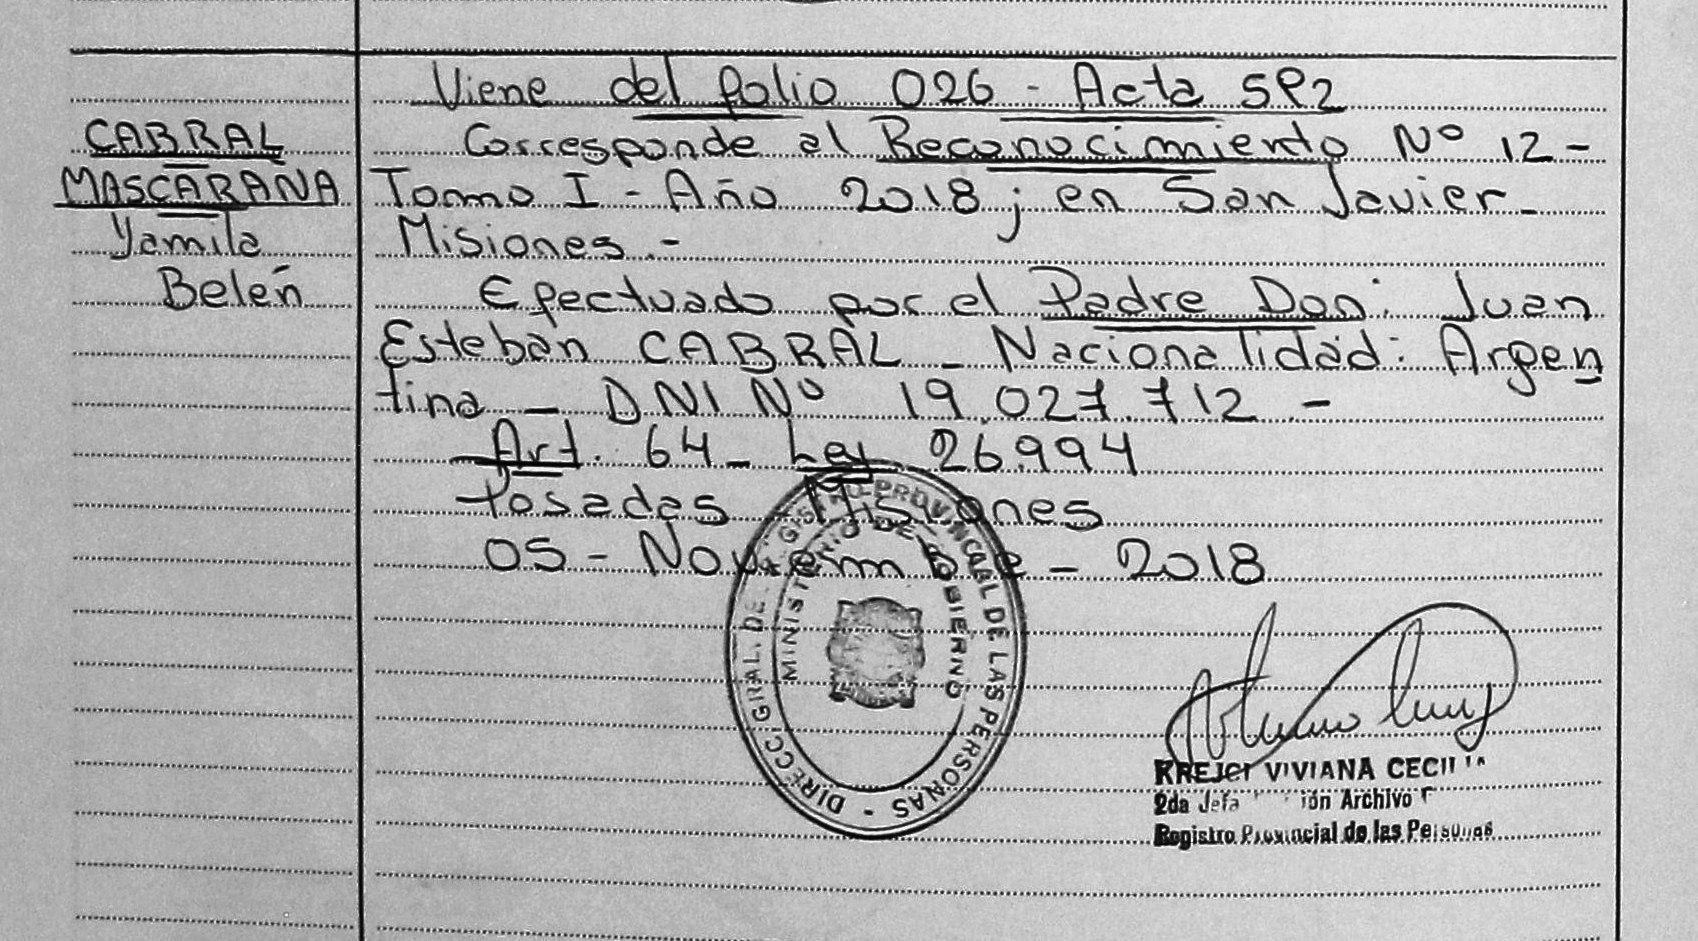 CABRAL
MASCARAÑA
Yamila
Belén
Viene del folio 026 - Acta SP2
Corresponde al Reconocimiento Nº 12 -
Tomo I - Año 2018; en San Javier -
Misiones.-
Efectuado por el Padre Don: Juan
Esteban CABRAL - Nacionalidad: Argen
tina - DNI Nº 19.027.712 -
Art. 64 - Ley 26.994
Posadas Misiones
05 - Noviembre - 2018
DIRECC. GRAL. DE REGISTRO PROVINCIAL DE LAS PERSONAS -
MINISTERIO DE GOBIERNO
KREJCI VIVIANA CECILIA
2da Jefa Archivo
Registro Provincial de las Personas